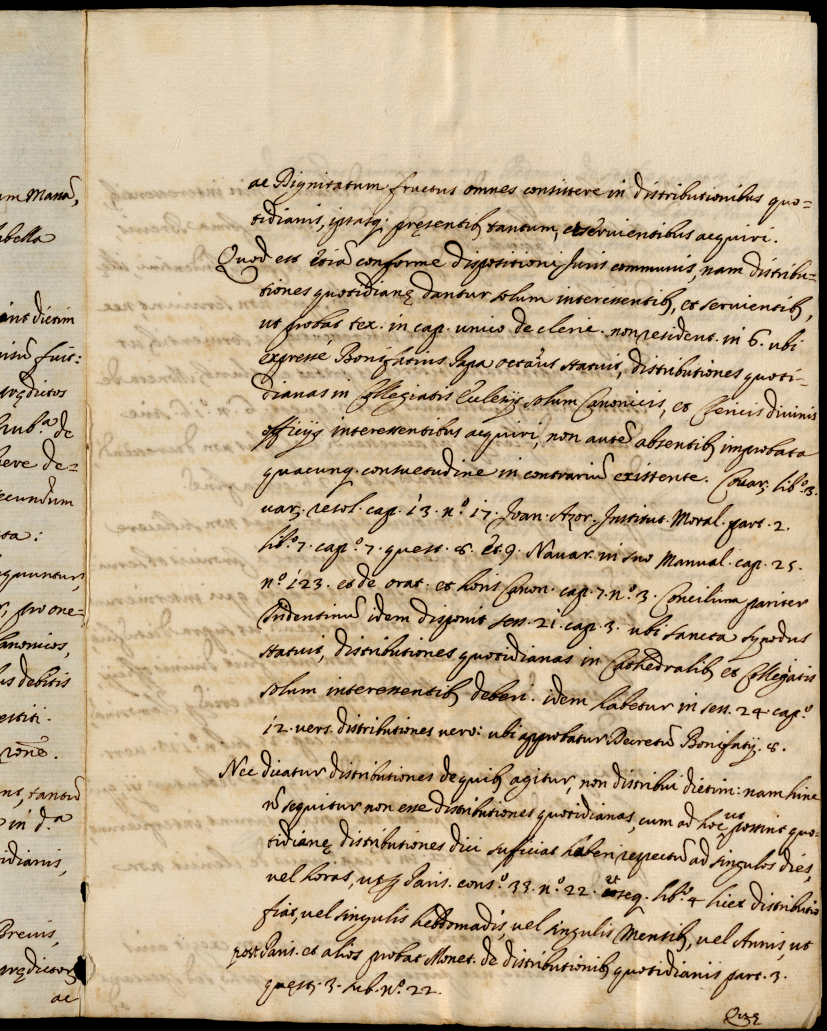 um Mansã,
abella
ac Dignitatum fructus omnes consistere in distributionibus quo=
tidianis, ipsasq; presentib9 tantum, et servientibus acquiri.
Quod est etiã conforme dispositioni Juris communis, nam distribu-
tiones quotidianę dantur solum interessentib9, et servientib9,
ut probat tex. in cap. unico de cleric. non resident. in 6. ubi
expressé Bonifatius Papa octãus statuit, distributiones quoti-
dianas in Collegiatis Ecclesijs solum Canonicis, et Clericis divinis
officijs interessentibus acquiri, non autẽ absentib9 improbata
quacunq. consuetudine in contrariũ existente. Covar. lib.º 3.
var. resol. cap. 13. n.º 17. Joan. Azor. Institut. Moral. part. 2.
lib.º 7. cap.º 7. quest. 8. et 9. Navar. in suo Manual. cap. 25.
n.º 123. et de orat. et horis Canon. cap. 7. n.º 3. Concilium pariter
Tridentinũ idem disponit sess. 21. cap. 3. ubi sancta synodus
statuit, distributiones quotidianas in Cathedralib9 et Collegiatis
solum interessentib9 deberi. idem habetur in sess. 24. cap.º
12. vers. distributiones vero: ubi approbatur Decretũ Bonifatij. 8.
Nec dicatur distributiones de quib9 agitur, non distribui dietim: nam hinc
nõ sequitur non esse distributiones quotidianas, cum ad hoc ut possint quo-
tidianę distributiones dici suficiat haberi respectũ ad singulos dies,
vel horas, ut Paris. cons.º 33. n.º 22. et seq. lib.º 4 licet distributio
fiat, vel singulis hebdomadis, vel singulis Mensib9, vel Annis, ut
post Paris. et alios probat Monet. de distributionib9 quotidianis part. 3.
quest. 3. sub. n.º 22.
ac